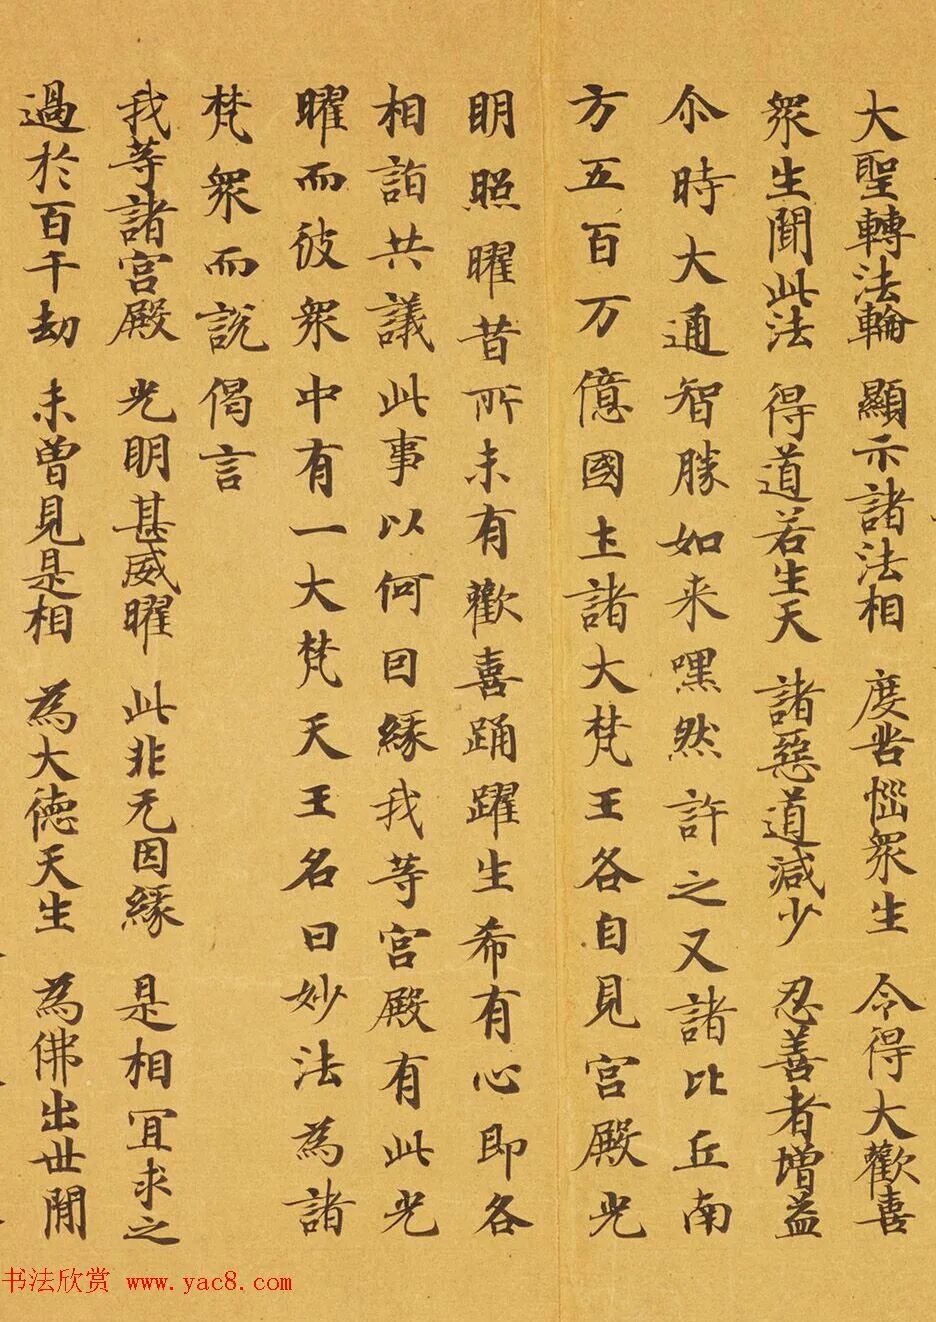 大聖轉法輪 顯示諸法相 度苦惱衆生 令得大歡喜
衆生聞此法 得道若生天 諸惡道減少 忍善者增益
尒時大通智勝如来嘿然許之又諸比丘南
方五百万億國土諸大梵王各自見宫殿光
明照曜昔所未有歡喜踊躍生希有心即各
相詣共議此事以何因緣我等宫殿有此光
曜而彼衆中有一大梵天王名曰妙法為諸
梵衆而説偈言
我等諸宫殿 光明甚威曜 此非无因緣 是相冝求之
過於百千劫 未曾見是相 為大德天生 為佛出世間
书法欣赏 www.yac8.com